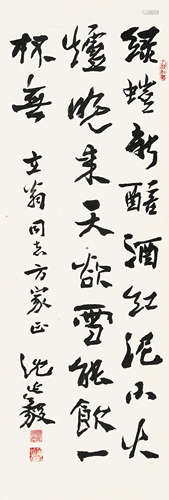 綠螘新醅酒紅泥小火
爐晚来天欲雪能飲一
杯無
立翁同志方家正
沈延毅